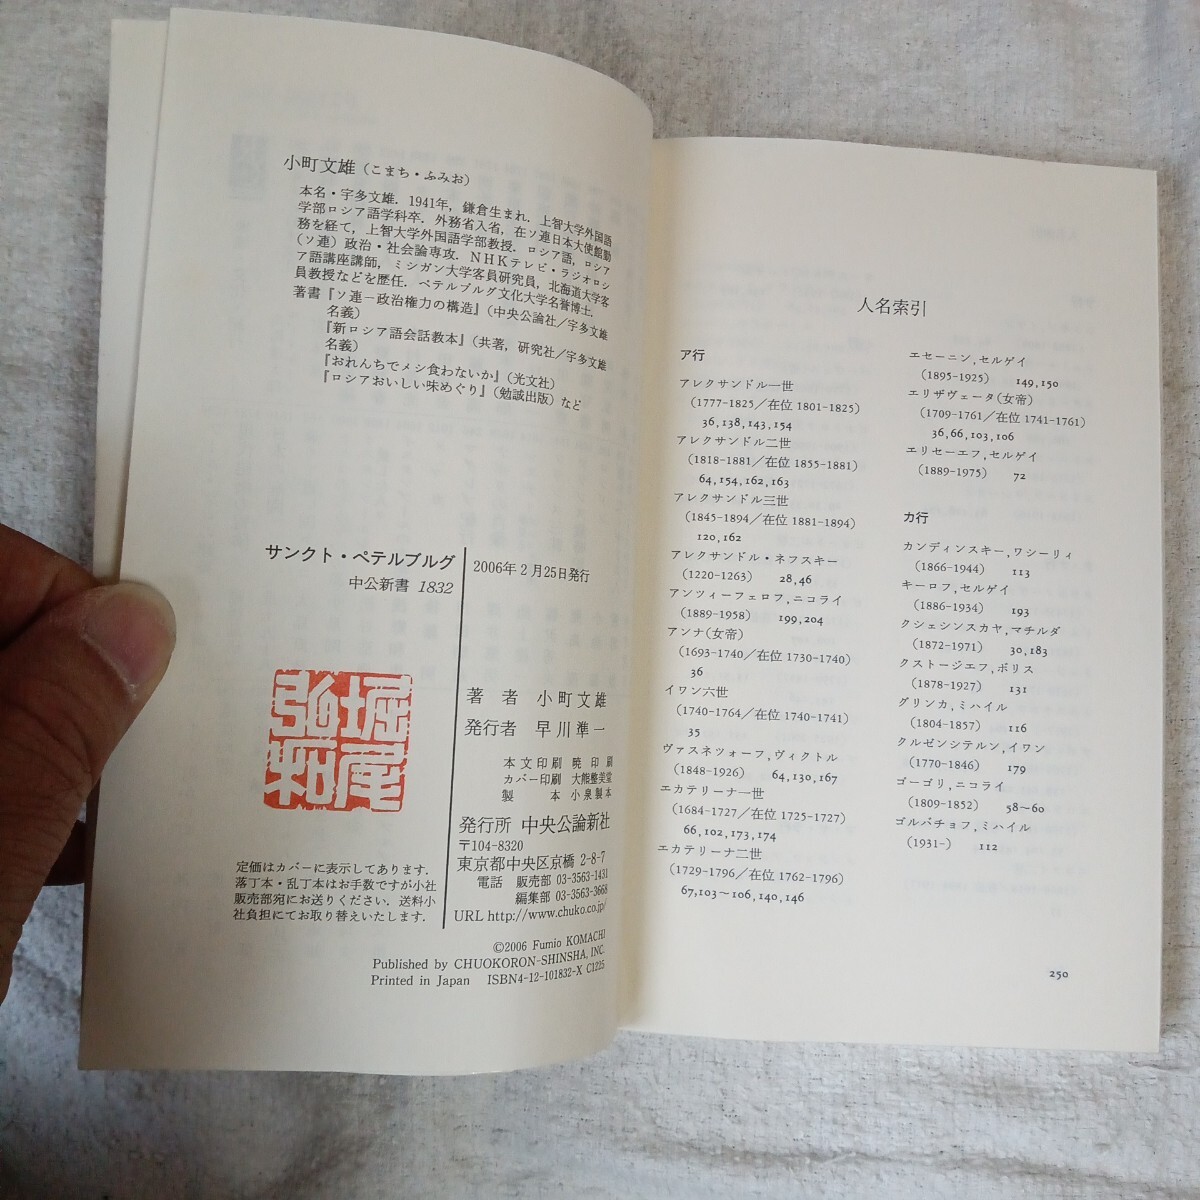 小町文雄（こまち・ふみお）
本名・宇多文雄．1941年，鎌倉生まれ．上智大学外国語
学部ロシア語学科卒．外務省入省，在ソ連日本大使館勤
務を経て，上智大学外国語学部教授．ロシア語，ロシア
（ソ連）政治・社会論専攻．NHKテレビ・ラジオロシ
ア語講座講師，ミシガン大学客員研究員，北海道大学客
員教授などを歴任．ペテルブルグ文化大学名誉博士．
著書『ソ連－政治権力の構造』（中央公論社／宇多文雄
名義）
『新ロシア語会話教本』（共著，研究社／宇多文雄
名義）
『おれんちでメシ食わないか』（光文社）
『ロシアおいしい味めぐり』（勉誠出版）など
サンクト・ペテルブルグ
中公新書 1832
2006年2月25日発行
堀尾
弘和
著　者　小町文雄
発行者　早川準一
本文印刷　暁印刷
カバー印刷　大熊整美堂
製　本　小泉製本
発行所　中央公論新社
〒104-8320
東京都中央区京橋 2-8-7
電話　販売部 03-3563-1431
編集部 03-3563-3668
URL http://www.chuko.co.jp/
定価はカバーに表示してあります．
落丁本・乱丁本はお手数ですが小社
販売部宛にお送りください．送料小
社負担にてお取り替えいたします．
©2006 Fumio KOMACHI
Published by CHUOKORON-SHINSHA, INC.
Printed in Japan　ISBN4-12-101832-X C1225
人名索引
ア行
アレクサンドル一世
(1777-1825／在位 1801-1825)
36, 138, 143, 154
アレクサンドル二世
(1818-1881／在位 1855-1881)
64, 154, 162, 163
アレクサンドル三世
(1845-1894／在位 1881-1894)
120, 162
アレクサンドル・ネフスキー
(1220-1263)　28, 46
アンツィーフェロフ, ニコライ
(1889-1958)　199, 204
アンナ（女帝）
(1693-1740／在位 1730-1740)
36
イワン六世
(1740-1764／在位 1740-1741)
35
ヴァスネツォーフ, ヴィクトル
(1848-1926)　64, 130, 167
エカテリーナ一世
(1684-1727／在位 1725-1727)
66, 102, 173, 174
エカテリーナ二世
(1729-1796／在位 1762-1796)
67, 103～106, 140, 146
エセーニン, セルゲイ
(1895-1925)　149, 150
エリザヴェータ（女帝）
(1709-1761／在位 1741-1761)
36, 66, 103, 106
エリセーエフ, セルゲイ
(1889-1975)　72
カ行
カンディンスキー, ワシーリィ
(1866-1944)　113
キーロフ, セルゲイ
(1886-1934)　193
クシェシンスカヤ, マチルダ
(1872-1971)　30, 183
クストージエフ, ボリス
(1878-1927)　131
グリンカ, ミハイル
(1804-1857)　116
クルゼンシテルン, イワン
(1770-1846)　179
ゴーゴリ, ニコライ
(1809-1852)　58～60
ゴルバチョフ, ミハイル
(1931-)　112
250